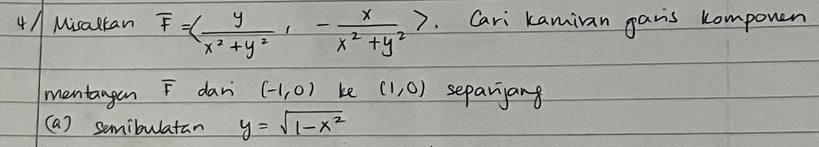 4/ Misalkan F̅ = < y/(x² + y²) , - x/(x² + y²) >. Cari kamiran garis komponen
mentangen F̅ dari (-1,0) ke (1,0) sepanjang
(a) semibulatan y = √(1-x²)